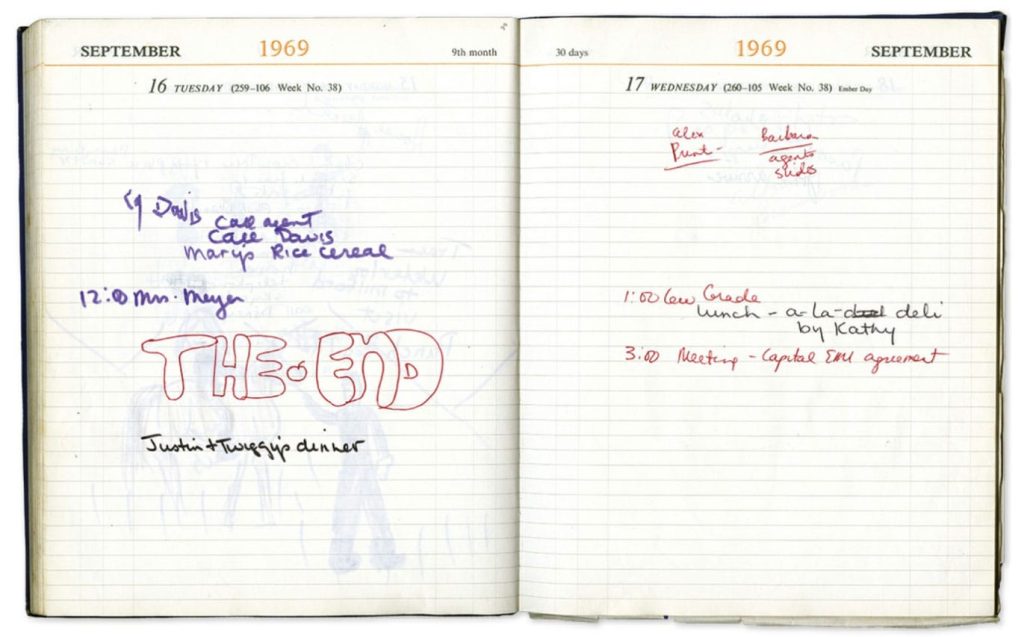 SEPTEMBER 1969 9th month
16 TUESDAY (259–106 Week No. 38)
Davis call agent
Call Davis
Mary's Rice cereal
12:00 Mrs. Meyer
THE END
Justin + Twiggy's dinner
30 days 1969 SEPTEMBER
17 WEDNESDAY (260–105 Week No. 38) Ember Day
Alex Barbara
Print - agents
slides
1:00 Lew Grade
lunch - a-la- deli
by Kathy
3:00 Meeting - Capital EMI agreement